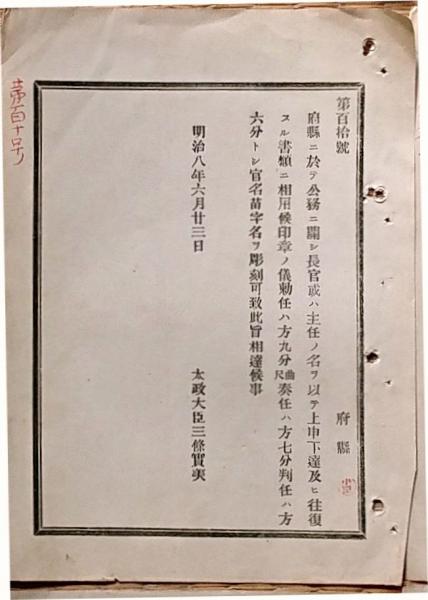 第百十号
第百拾號
府縣
府縣ニ於テ公務ニ關シ長官或ハ主任ノ名ヲ以テ上申下達及ヒ往復
スル書類ニ相用候印章ノ儀勅任ハ方九分曲尺奏任ハ方七分判任ハ方
六分トシ官名苗字名ヲ彫刻可致此旨相達候事
明治八年六月廿三日
太政大臣三條實美